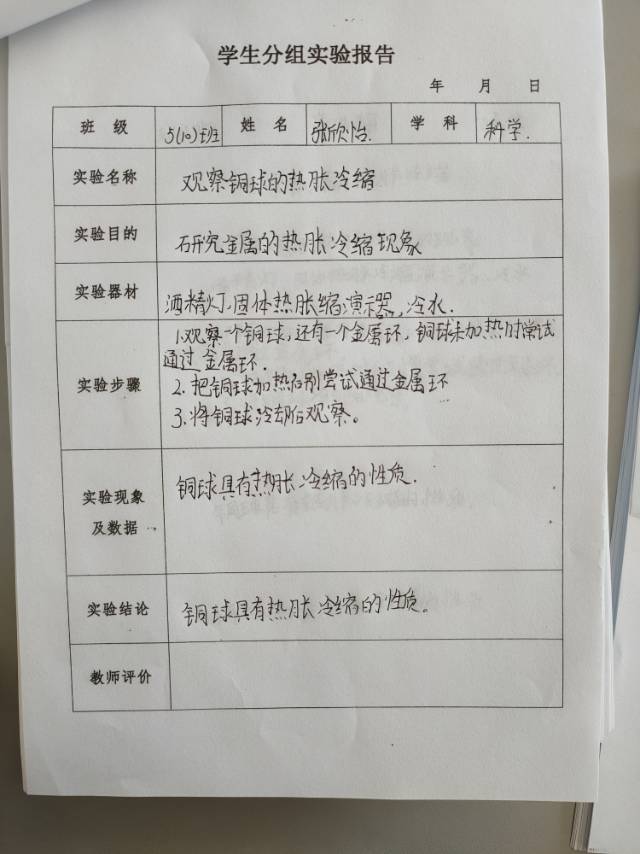 学生分组实验报告
年 月 日
班 级 5(10)班 姓 名 张欣怡 学 科 科学.
实验名称 观察铜球的热胀冷缩
实验目的 研究金属的热胀冷缩现象
实验器材 酒精灯.固体热胀缩演示器,冷水.
1.观察一个铜球,还有一个金属环,铜球未加热时尝试
通过金属环.
实验步骤 2.把铜球加热后别尝试通过金属环
3.将铜球冷却后观察。
实验现象 铜球具有热胀冷缩的性质.
及数据
实验结论 铜球具有热胀冷缩的性质。
教师评价